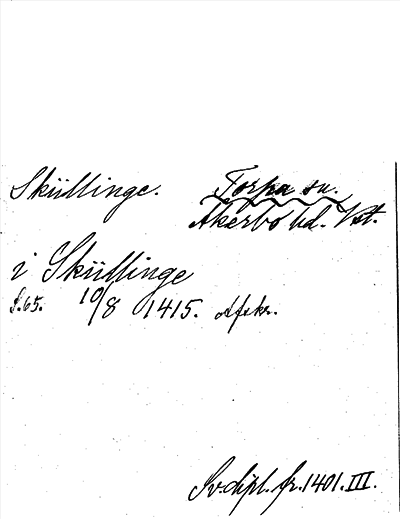 Sküllinge. Torpa sn.
Åkerbo hd. Vst.
i Sküllinge
S.65. 10/8 1415. Afskr.
Sv.dipl. fr. 1401. III.